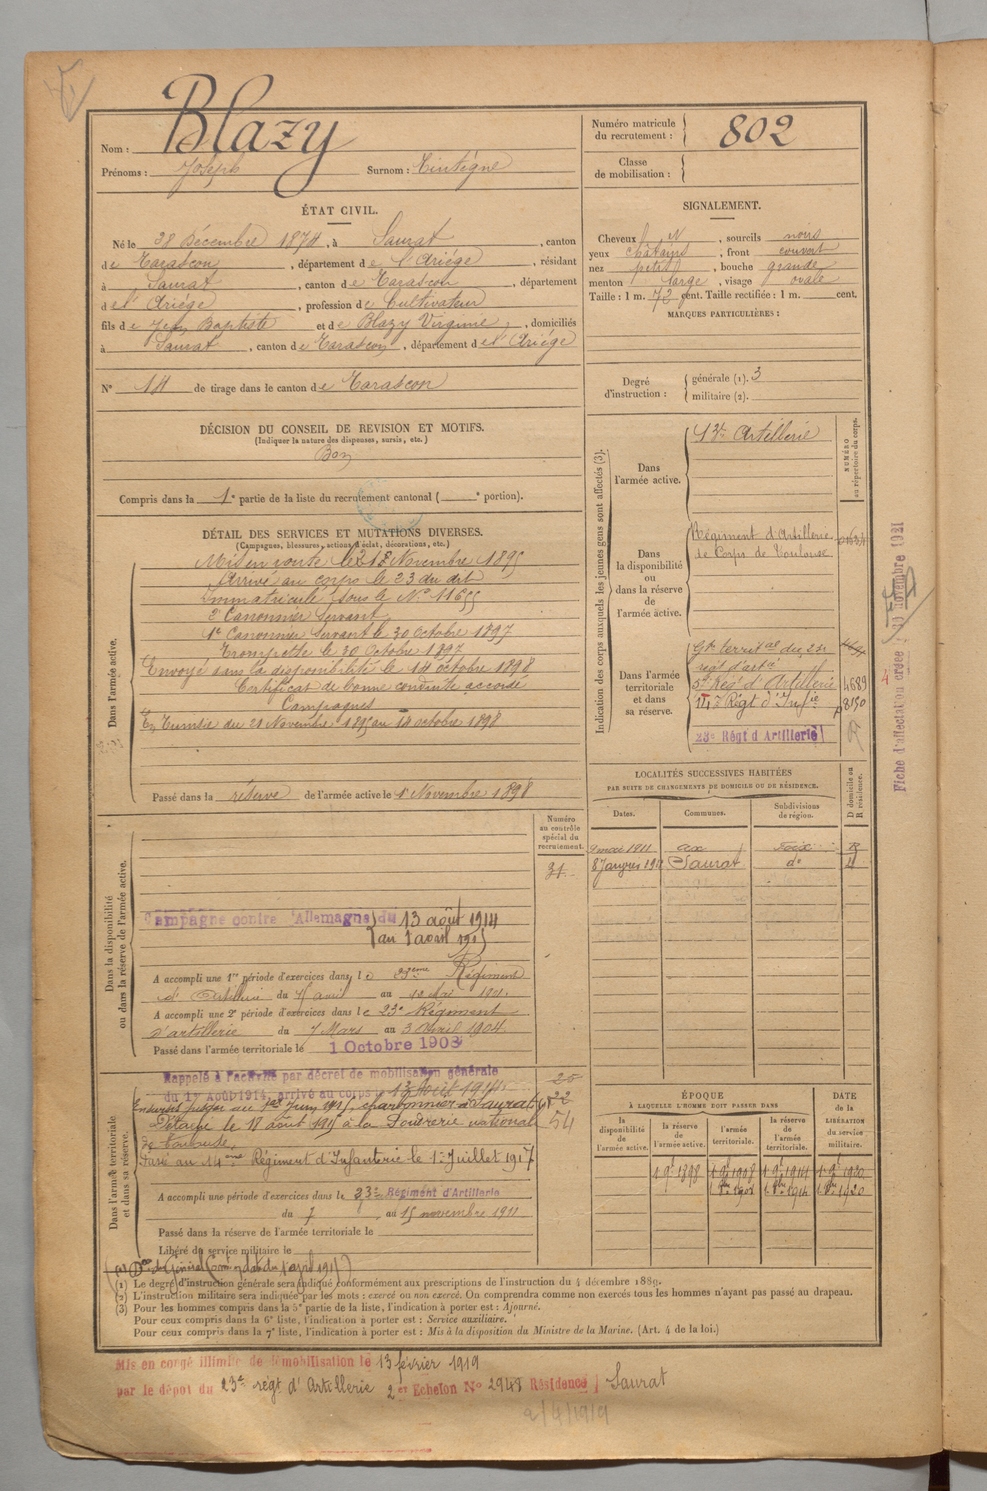 Nom : Blazy
Prénoms : Joseph Surnom : Tintégne
Numéro matricule du recrutement : 802
Classe de mobilisation :
ÉTAT CIVIL.
Né le 28 Décembre 1874, à Saurat, canton
de Tarascon, département de l'Ariége, résidant
à Saurat, canton de Tarascon, département
de l'Ariége, profession de Cultivateur
fils de Jean Baptiste et de Blazy Virginie, domiciliés
à Saurat, canton de Tarascon, département de l'Ariége
N° 14 de tirage dans le canton de Tarascon
SIGNALEMENT.
Cheveux N, sourcils noirs
yeux châtains, front couvert
nez petit, bouche grande
menton large, visage ovale
Taille : 1 m. 72 cent. Taille rectifiée : 1 m. cent.
MARQUES PARTICULIÈRES :
Degré d'instruction : générale (1). 3
militaire (2).
DÉCISION DU CONSEIL DE REVISION ET MOTIFS.
(Indiquer la nature des dispenses, sursis, etc.)
Bon
Compris dans la 1e partie de la liste du recrutement cantonal ( e portion).
DÉTAIL DES SERVICES ET MUTATIONS DIVERSES.
(Campagnes, blessures, actions d'éclat, décorations, etc.)
Dans l'armée active.
Mis en route le Novembre 1895
Arrivé au corps le 23 du dit
Immatriculé sous le N° 11655
2e Canonnier Servant
1er Canonnier Servant le 30 Octobre 1897
Trompette le 30 Octobre 1897
Envoyé dans la disponibilité le 14 octobre 1898
Certificat de bonne conduite accordé
Campagnes
En Tunisie du 21 Novembre 1895 au 14 octobre 1898
Passé dans la réserve de l'armée active le 1er Novembre 1898
Indication des corps auxquels les jeunes gens sont affectés (3).
NUMÉRO au répertoire du corps.
Dans l'armée active.
13e Artillerie
Dans la disponibilité ou dans la réserve de l'armée active.
Régiment d'Artillerie
de Corps de Toulouse
Dans l'armée territoriale et dans sa réserve.
Gpe territal du 23e
régt d'artie
5e Rég' d'Artillerie 4689
14e Régt d'Infie 8150
23e Régt d'Artillerie
Fiche d'affectation créée : novembre 1921
LOCALITÉS SUCCESSIVES HABITÉES
PAR SUITE DE CHANGEMENTS DE DOMICILE OU DE RÉSIDENCE.
Dates. Communes. Subdivisions de région. D domicile ou R résidence.
9 mai 1911 Ax Foix R
8 Janvier 19 Saurat do
Dans la disponibilité ou dans la réserve de l'armée active.
Numéro au contrôle spécial du recrutement.
31
Campagne contre l'Allemagne du 13 août 1914
au 1 août 1915
A accompli une 1re période d'exercices dans le 23ème Régiment
d'Artillerie du avril au 1901.
A accompli une 2e période d'exercices dans le 23e Régiment
d'artillerie du 7 Mars au 3 Avril 1904.
Passé dans l'armée territoriale le 1 Octobre 1908
Dans l'armée territoriale et dans sa réserve.
Rappelé à l'activité par décret de mobilisation générale
du 1er Août 1914, arrivé au corps le 13 Août 1914
En sursis jusqu'au 1er Juin 1915, charbonnier à Saurat
Détaché le 18 août 1915 à la Poudrerie nationale
de Toulouse,
Passé au 14ème Régiment d'Infanterie le 1er Juillet 1917
54
A accompli une période d'exercices dans le 23e Régiment d'Artillerie
du 7 au 15 novembre 1911
Passé dans la réserve de l'armée territoriale le
Libéré du service militaire le
ÉPOQUE
À LAQUELLE L'HOMME DOIT PASSER DANS
la disponibilité de l'armée active. la réserve de l'armée active. l'armée territoriale. la réserve de l'armée territoriale.
DATE de la LIBÉRATION du service militaire.
1 9e 1898 1 9e 1908 1 9e 1914 1 9e 1920
1 8bre 1908 1 8bre 1914 1 8bre 1920
(1) Le degré d'instruction générale sera indiqué conformément aux prescriptions de l'instruction du 4 décembre 1889.
(2) L'instruction militaire sera indiquée par les mots : exercé ou non exercé. On comprendra comme non exercés tous les hommes n'ayant pas passé au drapeau.
(3) Pour les hommes compris dans la 5e partie de la liste, l'indication à porter est : Ajourné.
Pour ceux compris dans la 6e liste, l'indication à porter est : Service auxiliaire.
Pour ceux compris dans la 7e liste, l'indication à porter est : Mis à la disposition du Ministre de la Marine. (Art. 4 de la loi.)
Mis en congé illimité de démobilisation le 13 février 1919
par le dépot du 23e régt d'Artillerie 2e Echelon N° 2948 Résidence Saurat
2/4/1919